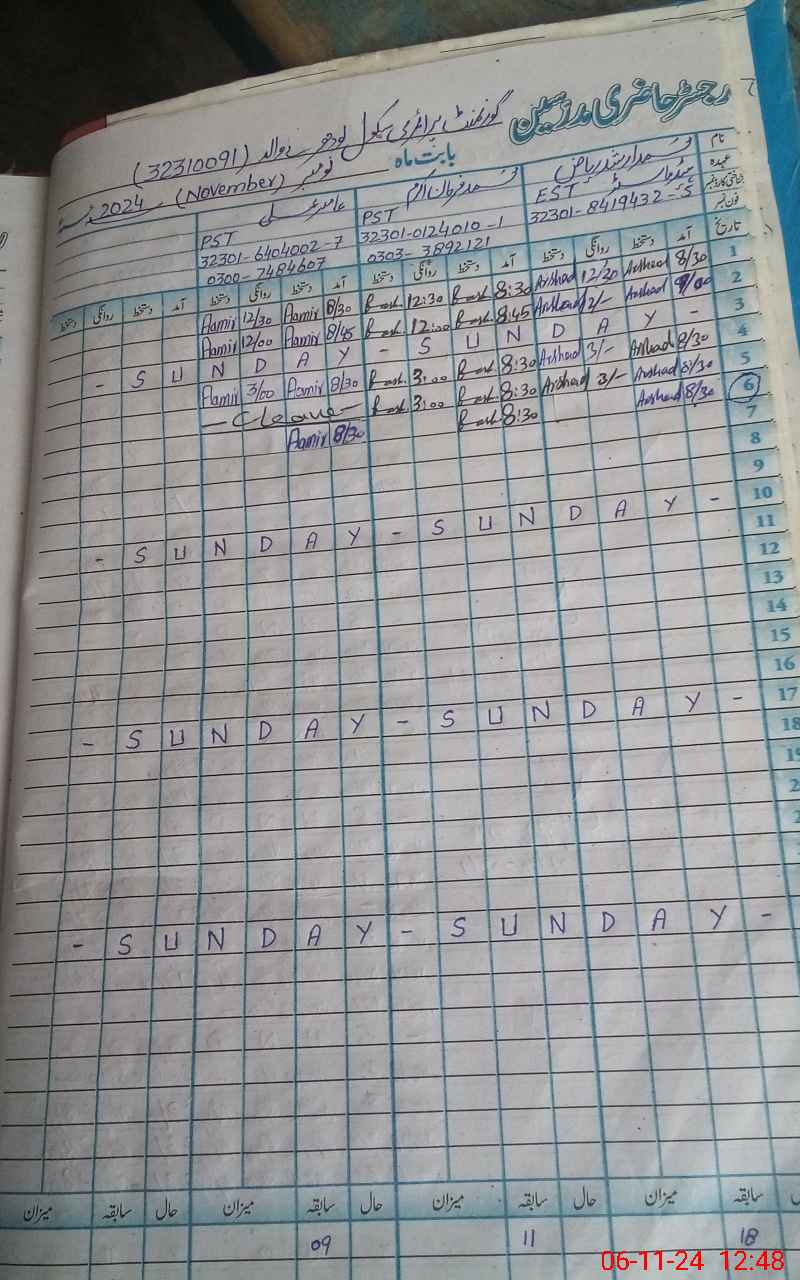 رجسٹر حاضری مدرسین
گورنمنٹ پرائمری سکول لودھرے والہ (32310091)
بابت ماہ نومبر (November) 2024
نام محمد ارشد ریاض محمد فرحان اکرم عامر علی
عہدہ ہیڈ ماسٹر EST PST PST
شناختی کارڈ نمبر 32301-8419432-5 32301-0124010-1 32301-6404002-7
فون نمبر 0303-3892121 0300-7484607
تاریخ آمد دستخط روانگی دستخط آمد دستخط روانگی دستخط آمد دستخط روانگی دستخط آمد دستخط روانگی دستخط
1 8/30 Arshad 12/30 Arshad 8:30 12:30 8/30 Aamir 12/30 Aamir
2 9/00 Arshad 2/- Arshad 8:45 12:00 8/45 Aamir 12/00 Aamir
3 - S U N D A Y - S U N D A Y -
4 8/30 Arshad 3/- Arshad 8:30 3:00 8/30 Aamir 3/00 Aamir
5 8/30 Arshad 3/- Arshad 8:30 3:00
6 8/30 Arshad 8:30 8/30 Aamir
7
8
9
10 - S U N D A Y - S U N D A Y -
11
12
13
14
15
16
17 - S U N D A Y - S U N D A Y -
18
19
- S U N D A Y - S U N D A Y -
سابقہ میزان حال سابقہ میزان حال سابقہ میزان حال سابقہ میزان
18 11 09
06-11-24 12:48